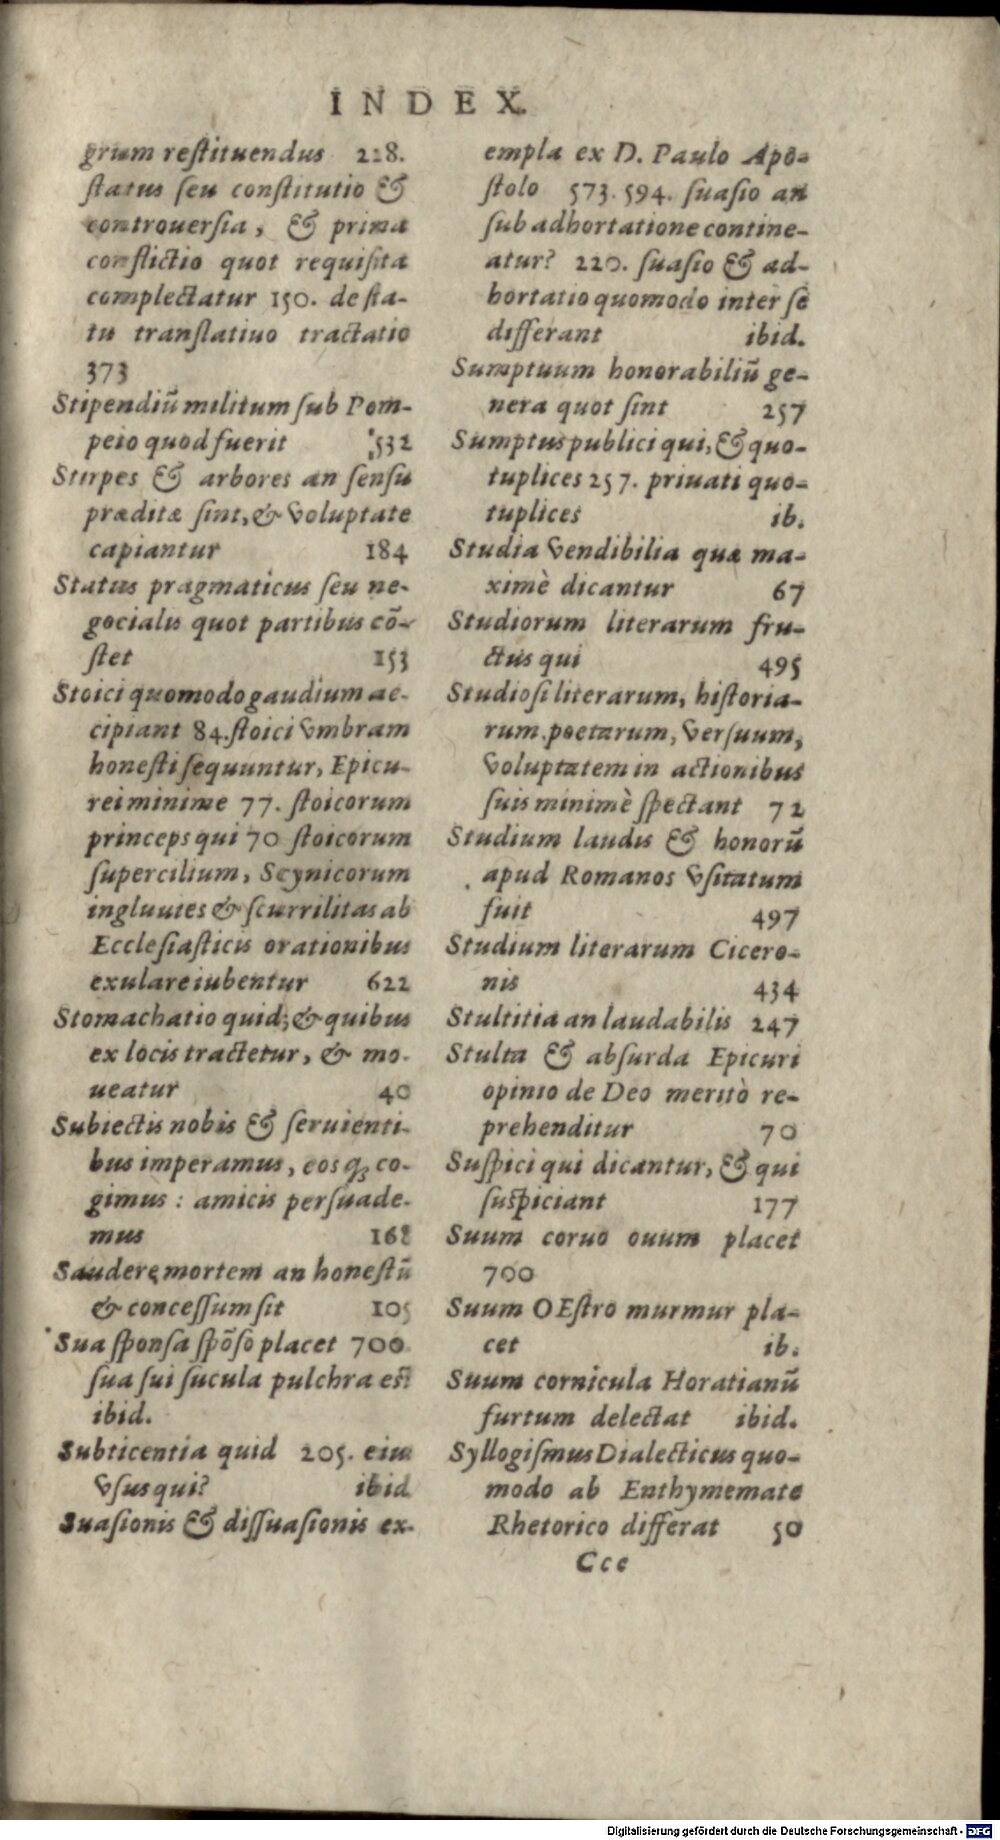 INDEX.
grium restituendus 228.
status seu constitutio &
controuersia, & prima
conflictio quot requisita
complectatur 150. de sta-
tu translatiuo tractatio
373
Stipendiū militum sub Pom-
peio quod fuerit 532
Stirpes & arbores an sensu
præditæ sint, & voluptate
capiantur 184
Status pragmaticus seu ne-
gocialis quot partibus cō-
stet 153
Stoici quomodo gaudium ac-
cipiant 84. stoici vmbram
honesti sequuntur, Epicu-
rei minime 77. stoicorum
princeps qui 70 stoicorum
supercilium, Scynicorum
ingluuies & scurrilitas ab
Ecclesiasticis orationibus
exulare iubentur 622
Stomachatio quid; & quibus
ex locis tractetur, & mo-
ueatur 40
Subiectis nobis & seruienti-
bus imperamus, eosq; co-
gimus: amicis persuade-
mus 168
Saudere mortem an honestū
& concessum sit 105
Sua sponsa spōso placet 700
sua sui sucula pulchra est
ibid.
Subticentia quid 205. eius
vsus qui? ibid
Suasionis & dissuasionis ex-
empla ex D. Paulo Apo-
stolo 573. 594. suasio an
sub adhortatione contine-
atur? 220. suasio & ad-
hortatio quomodo inter se
differant ibid.
Sumptuum honorabiliū ge-
nera quot sint 257
Sumptus publici qui, & quo-
tuplices 257. priuati quo-
tuplices ib.
Studia vendibilia quæ ma-
ximè dicantur 67
Studiorum literarum fru-
ctus qui 495
Studiosi literarum, historia-
rum, poetarum, versuum,
voluptatem in actionibus
suis minimè spectant 72
Studium laudis & honorū
apud Romanos vsitatum
fuit 497
Studium literarum Cicero-
nis 434
Stultitia an laudabilis 247
Stulta & absurda Epicuri
opinio de Deo meritò re-
prehenditur 70
Suspici qui dicantur, & qui
suspiciant 177
Suum coruo ouum placet
700
Suum OEstro murmur pla-
cet ib.
Suum cornicula Horatianū
furtum delectat ibid.
Syllogismus Dialecticus quo-
modo ab Enthymemate
Rhetorico differat 50
Ccc
Digitalisierung gefördert durch die Deutsche Forschungsgemeinschaft - DFG